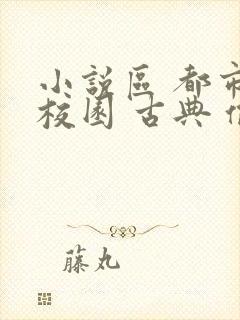 小說區 都市
校園 古典
藤丸